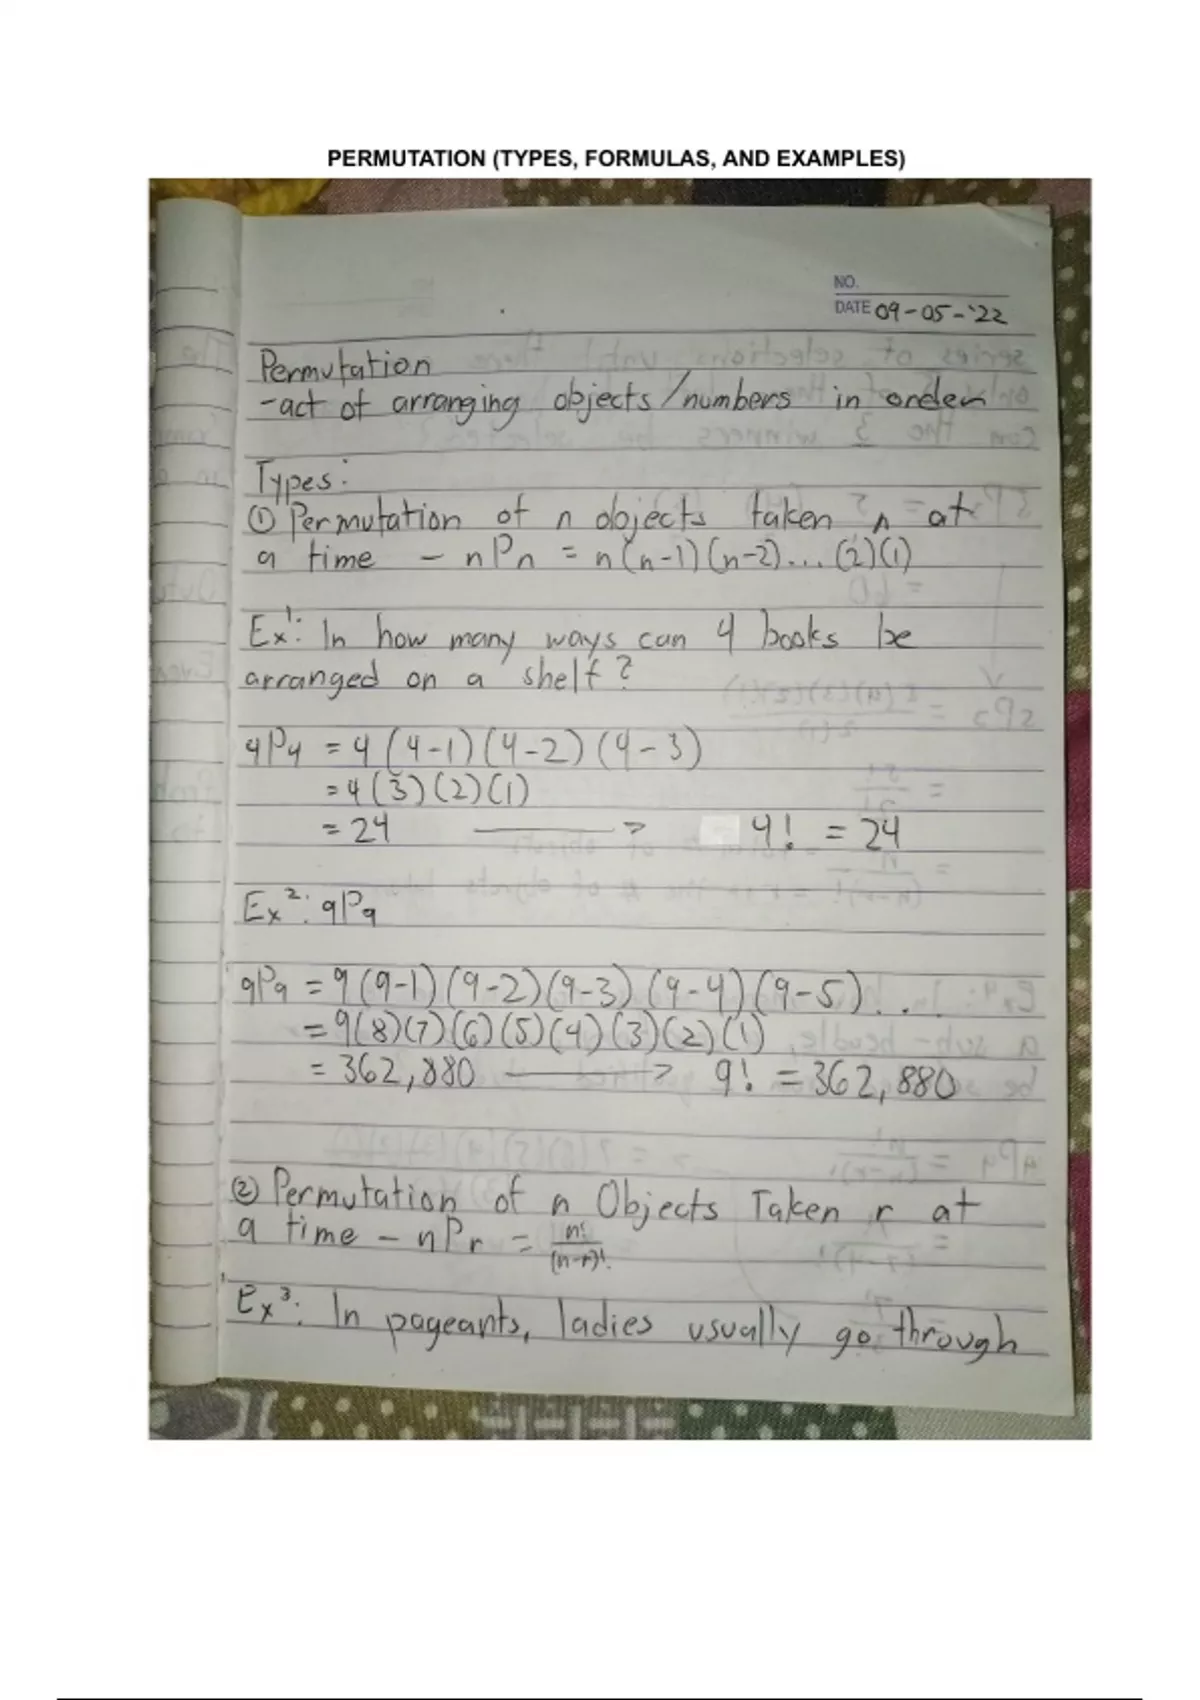 PERMUTATION (TYPES, FORMULAS, AND EXAMPLES)
NO.
DATE 09-05-'22
Permutation
-act of arranging objects/numbers in order
Types:
① Permutation of n objects taken n at
a time - nPn = n(n-1)(n-2)...(2)(1)
Ex¹: In how many ways can 4 books be
arranged on a shelf?
4P4 = 4(4-1)(4-2)(4-3)
= 4(3)(2)(1)
= 24 → 4! = 24
Ex²: 9P9
9P9 = 9(9-1)(9-2)(9-3)(9-4)(9-5)...
= 9(8)(7)(6)(5)(4)(3)(2)(1)
= 362,880 → 9! = 362,880
② Permutation of n Objects Taken r at
a time - nPr = n!/(n-r)!
Ex³: In pageants, ladies usually go through